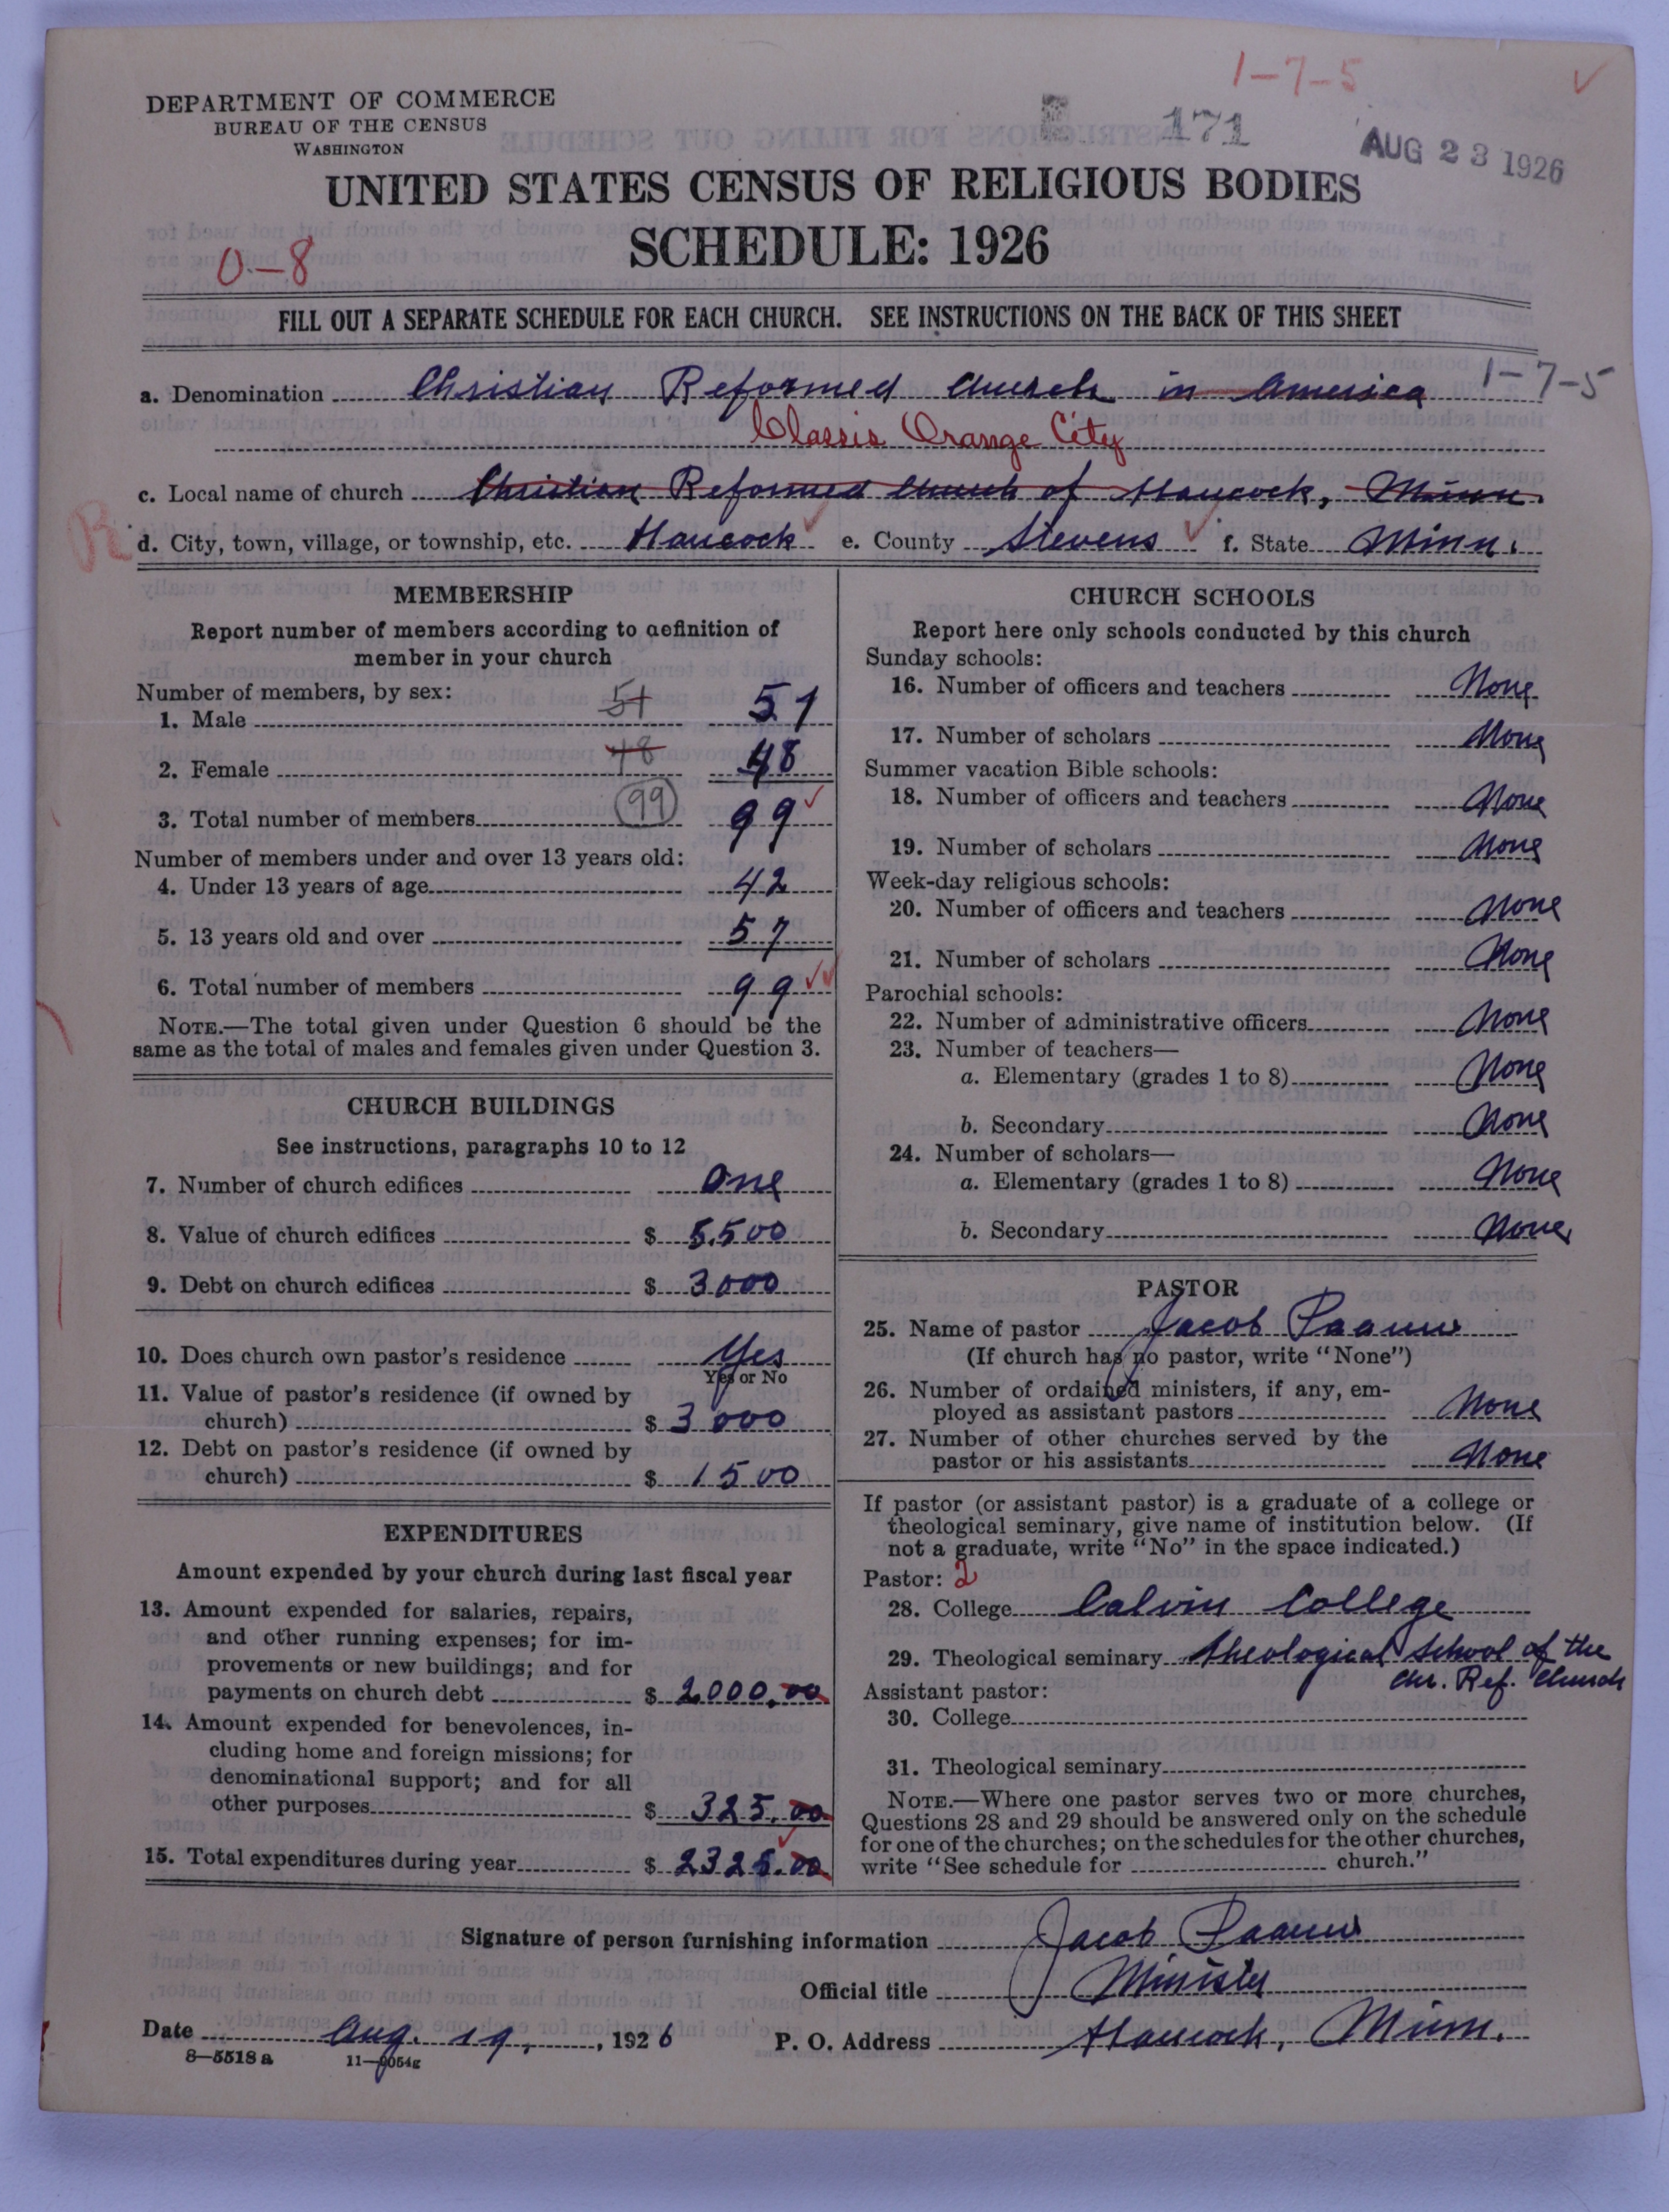 1-7-5
DEPARTMENT OF COMMERCE
BUREAU OF THE CENSUS
WASHINGTON
171
AUG 23 1926
UNITED STATES CENSUS OF RELIGIOUS BODIES
SCHEDULE: 1926
0-8
FILL OUT A SEPARATE SCHEDULE FOR EACH CHURCH. SEE INSTRUCTIONS ON THE BACK OF THIS SHEET
a. Denomination Christian Reformed Church in America 1-7-5
Classis Orange City
c. Local name of church Christian Reformed Church of Hancock, Minn.
R d. City, town, village, or township, etc. Hancock e. County Stevens f. State Minn.
MEMBERSHIP
Report number of members according to definition of
member in your church
Number of members, by sex:
1. Male 51 51
2. Female 48 48
3. Total number of members 99 99
Number of members under and over 13 years old:
4. Under 13 years of age 42
5. 13 years old and over 57
6. Total number of members 99
NOTE.—The total given under Question 6 should be the
same as the total of males and females given under Question 3.
CHURCH BUILDINGS
See instructions, paragraphs 10 to 12
7. Number of church edifices One
8. Value of church edifices $ 5,500
9. Debt on church edifices $ 3000
10. Does church own pastor's residence Yes
Yes or No
11. Value of pastor's residence (if owned by
church) $ 3000
12. Debt on pastor's residence (if owned by
church) $ 1500
EXPENDITURES
Amount expended by your church during last fiscal year
13. Amount expended for salaries, repairs,
and other running expenses; for im-
provements or new buildings; and for
payments on church debt $ 2000.00
14. Amount expended for benevolences, in-
cluding home and foreign missions; for
denominational support; and for all
other purposes $ 325.00
15. Total expenditures during year $ 2325.00
CHURCH SCHOOLS
Report here only schools conducted by this church
Sunday schools:
16. Number of officers and teachers None
17. Number of scholars None
Summer vacation Bible schools:
18. Number of officers and teachers None
19. Number of scholars None
Week-day religious schools:
20. Number of officers and teachers None
21. Number of scholars None
Parochial schools:
22. Number of administrative officers None
23. Number of teachers—
a. Elementary (grades 1 to 8) None
b. Secondary None
24. Number of scholars—
a. Elementary (grades 1 to 8) None
b. Secondary None
PASTOR
25. Name of pastor Jacob Paauw
(If church has no pastor, write "None")
26. Number of ordained ministers, if any, em-
ployed as assistant pastors None
27. Number of other churches served by the
pastor or his assistants None
If pastor (or assistant pastor) is a graduate of a college or
theological seminary, give name of institution below. (If
not a graduate, write "No" in the space indicated.)
Pastor: 2
28. College Calvin College
29. Theological seminary Theological School of the
Chr. Ref. Church
Assistant pastor:
30. College
31. Theological seminary
NOTE.—Where one pastor serves two or more churches,
Questions 28 and 29 should be answered only on the schedule
for one of the churches; on the schedules for the other churches,
write "See schedule for church."
Signature of person furnishing information Jacob Paauw
Official title Minister
Date Aug. 19, 1926 P. O. Address Hancock, Minn.
8-5518 a 11-9054g